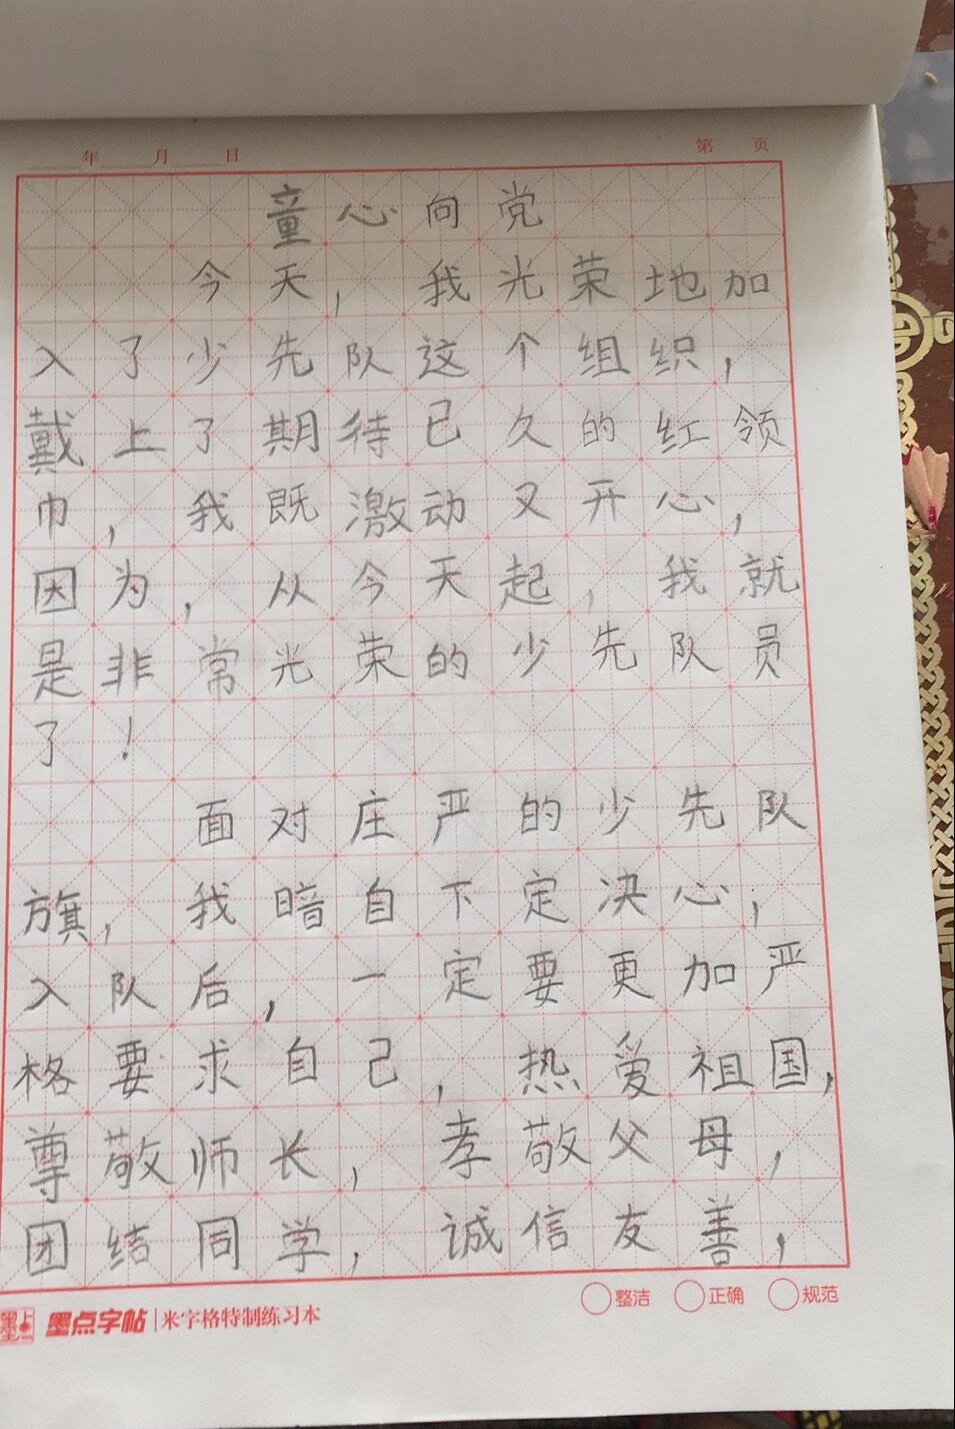 年 月 日 第 页
童心向党
今天，我光荣地加
入了少先队这个组织，
戴上了期待已久的红领
巾，我既激动又开心，
因为，从今天起，我就
是非常光荣的少先队员
了！
面对庄严的少先队
旗，我暗自下定决心；
入队后，一定要更加严
格要求自己，热爱祖国，
尊敬师长，孝敬父母，
团结同学，诚信友善，
整洁 正确 规范
墨点字帖 | 米字格特制练习本